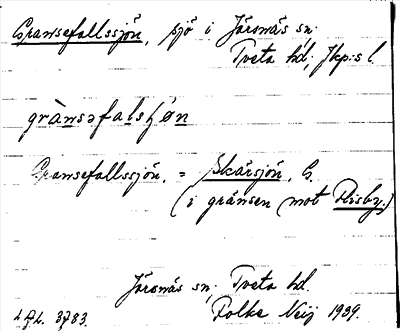 Gransefallssjön, sjö i Järsnäs sn.
Tveta hd, Jkp:s l.
grànsəfalsʃön
Gransefallssjön, = Skärsjön, G.
(i gränsen mot Flisby.)
Järsnäs sn, Tveta hd.
Folke Neij 1939.